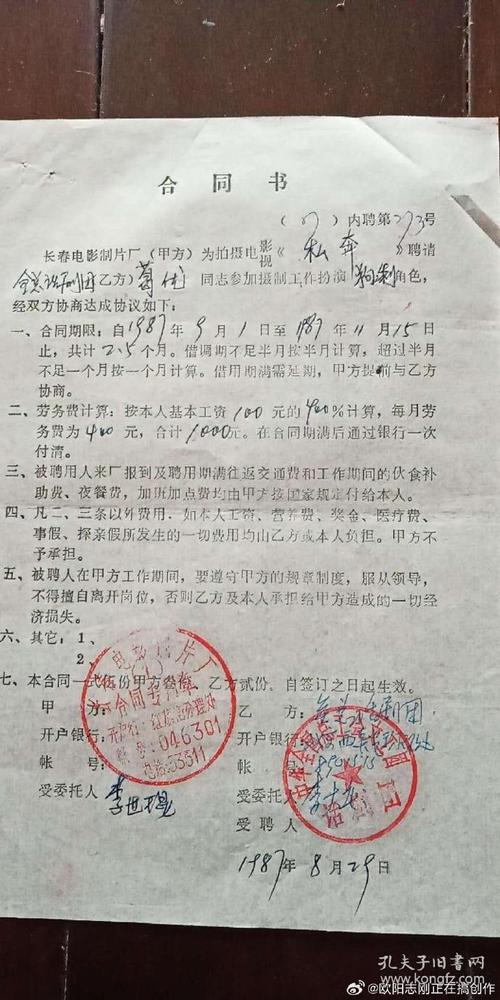 合同书
(87)内聘第273号
长春电影制片厂(甲方)为拍摄电影视《私奔》聘请
全总话剧团(乙方)葛优同志参加摄制工作扮演狗剩角色,
经双方协商达成协议如下:
一、合同期限:自1987年9月1日至1987年11月15日
止,共计2.5个月。借调期不足半月按半月计算,超过半月
不足一个月按一个月计算。借用期满需延期,甲方提前与乙方
协商。
二、劳务费计算:按本人基本工资100元的400%计算,每月劳
务费为400元,合计1000元。在合同期满后通过银行一次
付清。
三、被聘用人来厂报到及聘用期满往返交通费和工作期间的伙食补
助费、夜餐费,加班加点费均由甲方按国家规定付给本人。
四、凡二、三条以外费用,如本人工资、营养费、奖金、医疗费、
事假、探亲假所发生的一切费用均由乙方或本人负担。甲方不
予承担。
五、被聘人在甲方工作期间,要遵守甲方的规章制度,服从领导,
不得擅自离开岗位,否则乙方及本人承担给甲方造成的一切经
济损失。
六、其它:1、
2、
七、本合同一式伍份甲方叁份,乙方贰份,自签订之日起生效。
甲方:
乙方:全总话剧团
开户银行:
开户银行:
帐号:
帐号:
受委托人
受委托人
受聘人
电影制片厂
合同专用章
046301
电话53311
话剧团
1987年8月29日
孔夫子旧书网
@欧阳志刚正在搞创作